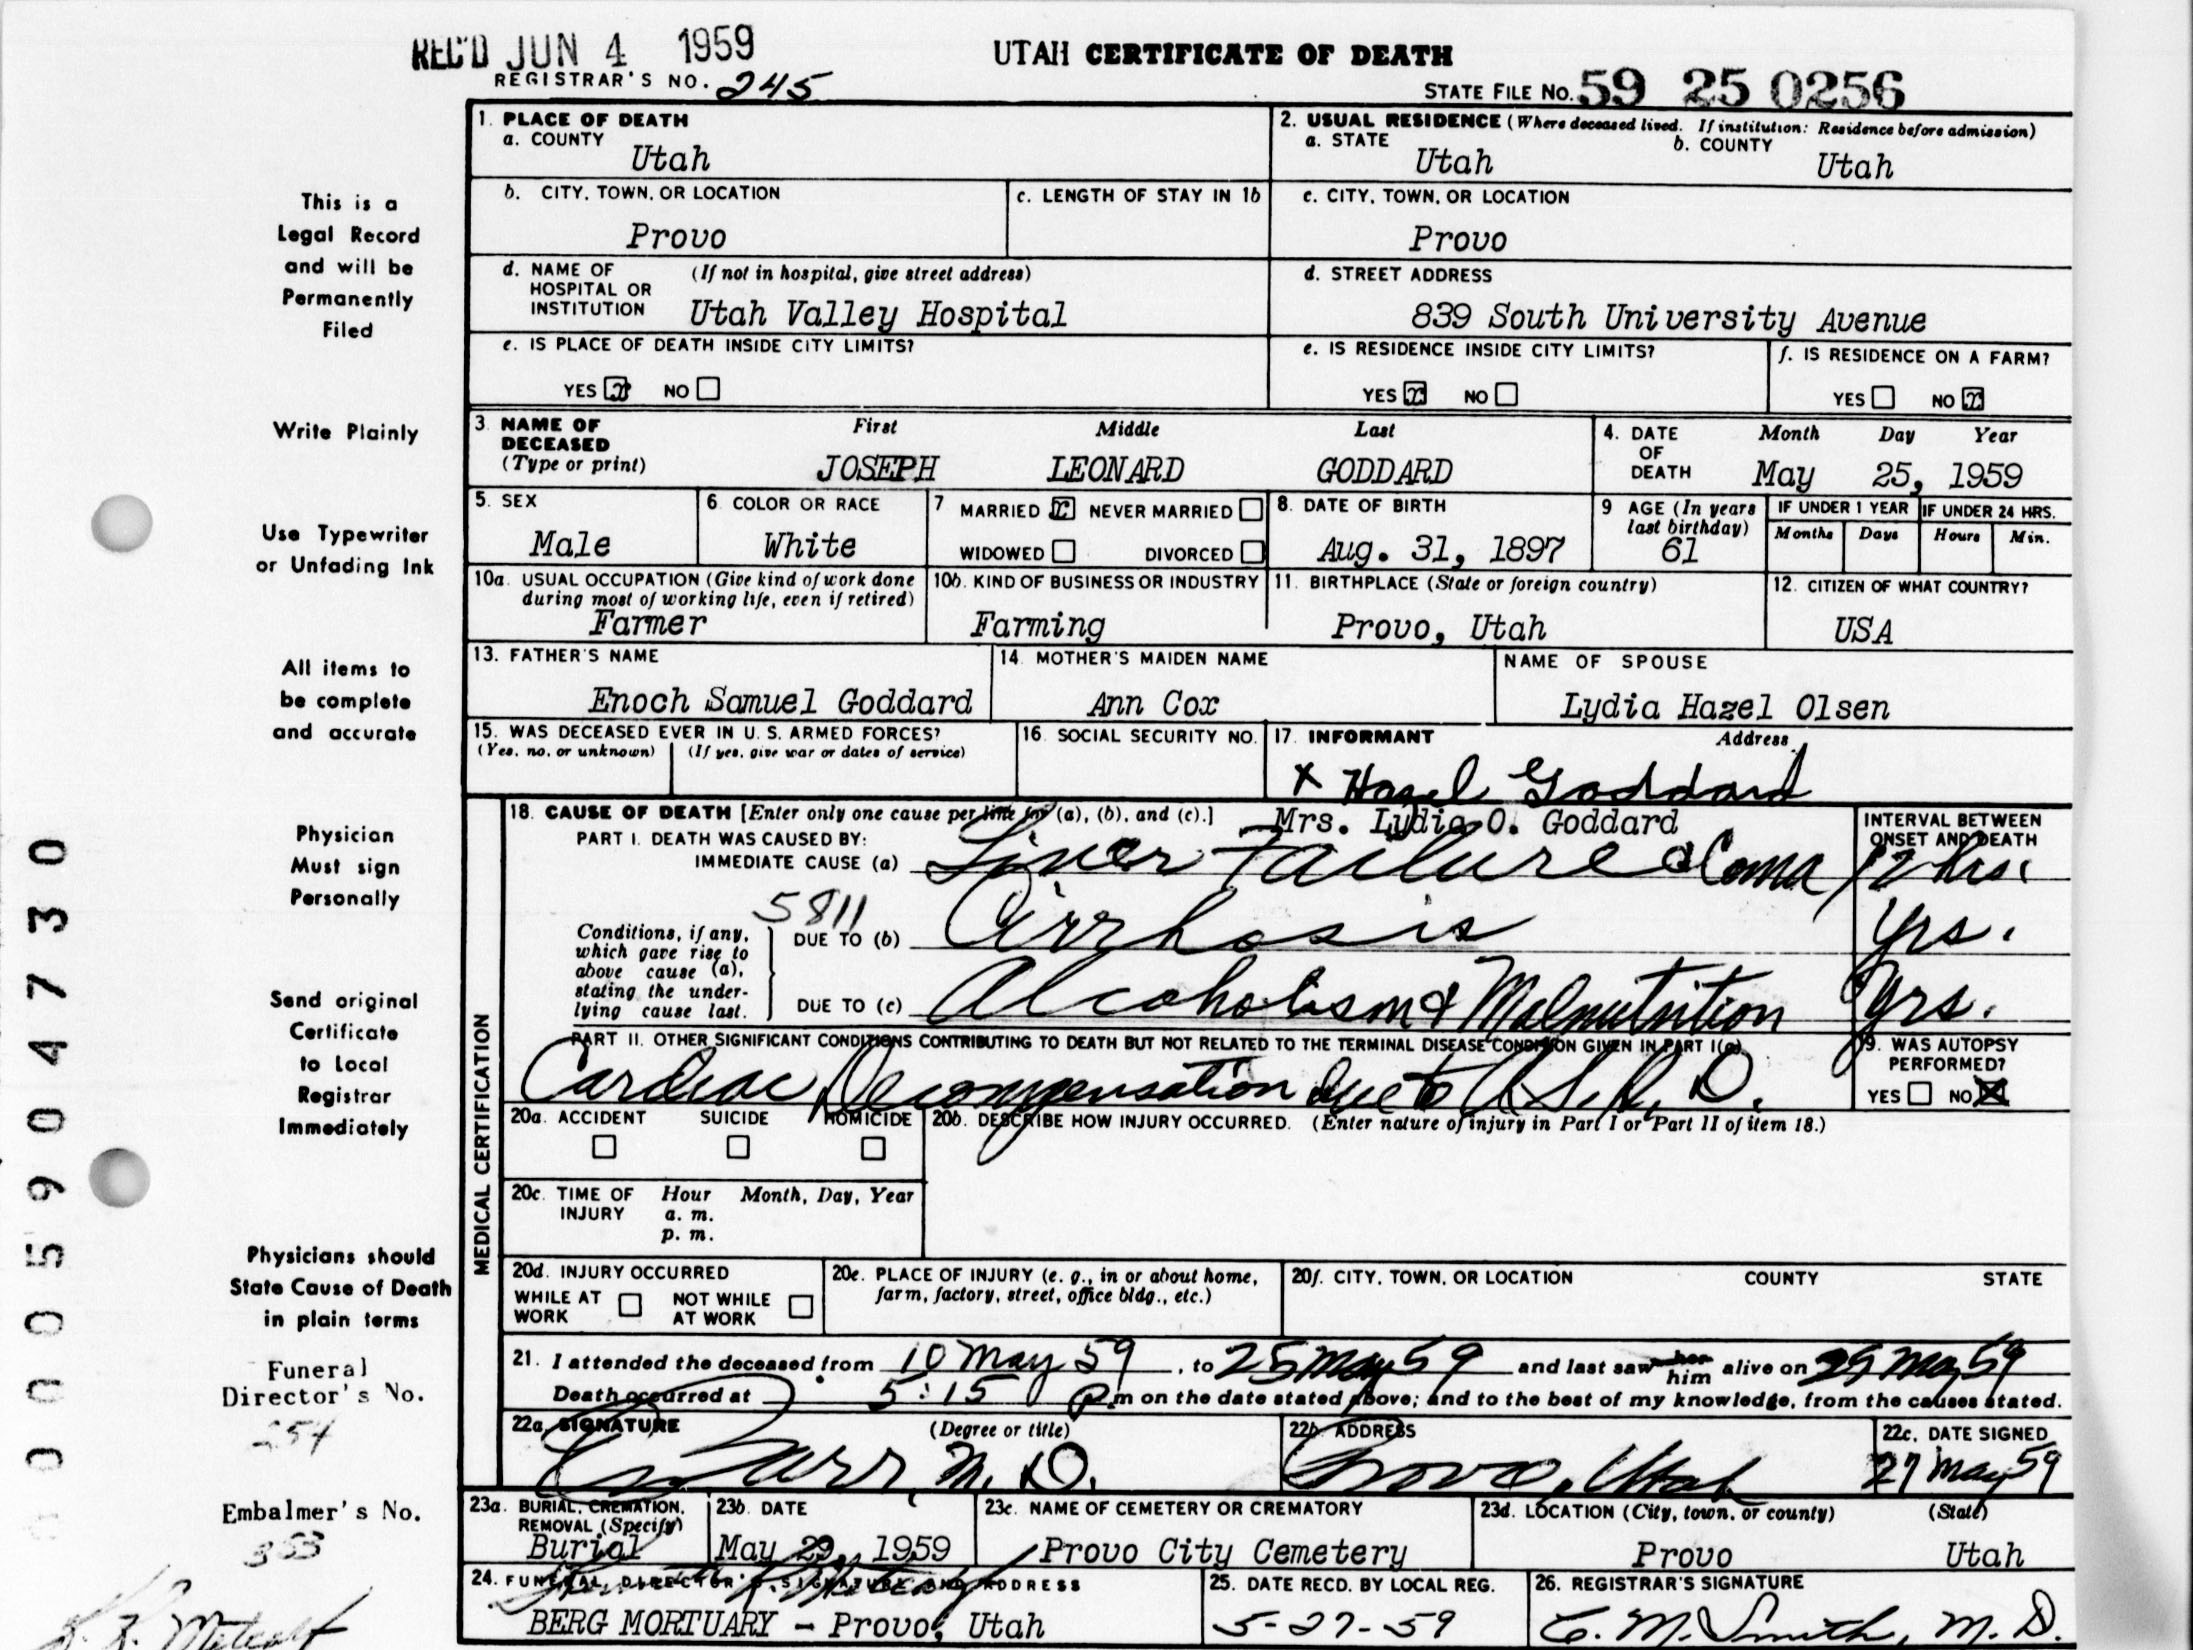 REC'D JUN 4 1959
UTAH CERTIFICATE OF DEATH
REGISTRAR'S NO. 245
STATE FILE NO. 59 25 0256
1. PLACE OF DEATH
a. COUNTY
Utah
2. USUAL RESIDENCE (Where deceased lived. If institution: Residence before admission)
a. STATE
Utah
b. COUNTY
Utah
b. CITY, TOWN, OR LOCATION
Provo
c. LENGTH OF STAY IN 1b
c. CITY, TOWN, OR LOCATION
Provo
d. NAME OF HOSPITAL OR INSTITUTION
(If not in hospital, give street address)
Utah Valley Hospital
d. STREET ADDRESS
839 South University Avenue
e. IS PLACE OF DEATH INSIDE CITY LIMITS?
YES x NO
e. IS RESIDENCE INSIDE CITY LIMITS?
YES x NO
f. IS RESIDENCE ON A FARM?
YES NO x
3. NAME OF DECEASED
(Type or print)
First Middle Last
JOSEPH LEONARD GODDARD
4. DATE OF DEATH
Month Day Year
May 25, 1959
5. SEX
Male
6 COLOR OR RACE
White
7 MARRIED x NEVER MARRIED
WIDOWED DIVORCED
8. DATE OF BIRTH
Aug. 31, 1897
9 AGE (In years last birthday)
61
IF UNDER 1 YEAR
Months Days
IF UNDER 24 HRS.
Hours Min.
10a. USUAL OCCUPATION (Give kind of work done during most of working life, even if retired)
Farmer
10b. KIND OF BUSINESS OR INDUSTRY
Farming
11. BIRTHPLACE (State or foreign country)
Provo, Utah
12. CITIZEN OF WHAT COUNTRY?
USA
13. FATHER'S NAME
Enoch Samuel Goddard
14. MOTHER'S MAIDEN NAME
Ann Cox
NAME OF SPOUSE
Lydia Hazel Olsen
15. WAS DECEASED EVER IN U. S. ARMED FORCES?
(Yes, no, or unknown) (If yes, give war or dates of service)
16. SOCIAL SECURITY NO.
17. INFORMANT Address
x Hazel Goddard
Mrs. Lydia O. Goddard
MEDICAL CERTIFICATION
18. CAUSE OF DEATH [Enter only one cause per line for (a), (b), and (c).]
PART I. DEATH WAS CAUSED BY:
IMMEDIATE CAUSE (a) Liver Failure & Coma
INTERVAL BETWEEN ONSET AND DEATH
12 hrs.
5811
Conditions, if any, which gave rise to above cause (a), stating the underlying cause last.
DUE TO (b) Cirrhosis
Yrs.
DUE TO (c) Alcoholism & Malnutrition
Yrs.
PART II. OTHER SIGNIFICANT CONDITIONS CONTRIBUTING TO DEATH BUT NOT RELATED TO THE TERMINAL DISEASE CONDITION GIVEN IN PART I(a)
Cardiac Decompensation due to A.S.H.D.
19. WAS AUTOPSY PERFORMED?
YES NO X
20a. ACCIDENT SUICIDE HOMICIDE
20b. DESCRIBE HOW INJURY OCCURRED. (Enter nature of injury in Part I or Part II of item 18.)
20c. TIME OF INJURY
Hour Month, Day, Year
a. m.
p. m.
20d. INJURY OCCURRED
WHILE AT WORK
NOT WHILE AT WORK
20e. PLACE OF INJURY (e. g., in or about home, farm, factory, street, office bldg., etc.)
20f. CITY, TOWN, OR LOCATION COUNTY STATE
21. I attended the deceased from 10 May 59, to 25 May 59 and last saw her him alive on 25 May 59
Death occurred at 5:15 P.m on the date stated above; and to the best of my knowledge, from the causes stated.
22a. SIGNATURE (Degree or title)
M. D.
22b. ADDRESS
Provo, Utah
22c. DATE SIGNED
27 May 59
23a. BURIAL, CREMATION, REMOVAL (Specify)
Burial
23b. DATE
May 29, 1959
23c. NAME OF CEMETERY OR CREMATORY
Provo City Cemetery
23d. LOCATION (City, town, or county) (State)
Provo Utah
24. FUNERAL DIRECTOR'S SIGNATURE AND ADDRESS
BERG MORTUARY - Provo, Utah
25. DATE RECD. BY LOCAL REG.
5-27-59
26. REGISTRAR'S SIGNATURE
E. M. Smith, M. D.
This is a
Legal Record
and will be
Permanently
Filed
Write Plainly
Use Typewriter
or Unfading Ink
All items to
be complete
and accurate
Physician
Must sign
Personally
Send original
Certificate
to Local
Registrar
Immediately
Physicians should
State Cause of Death
in plain terms
Funeral
Director's No.
254
Embalmer's No.
353
Metcalf